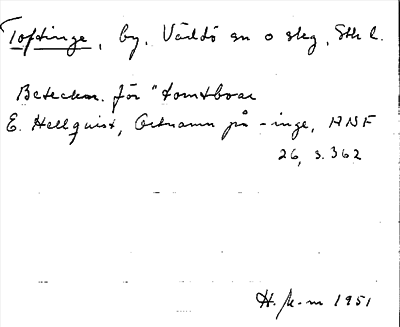 Toftinge, by, Väddö sn o skg, Sth l.
Beteckn. för "tomtboar
E. Hellquist, Ortnamn på -inge, HNF
26, s. 362
H. M-n 1951